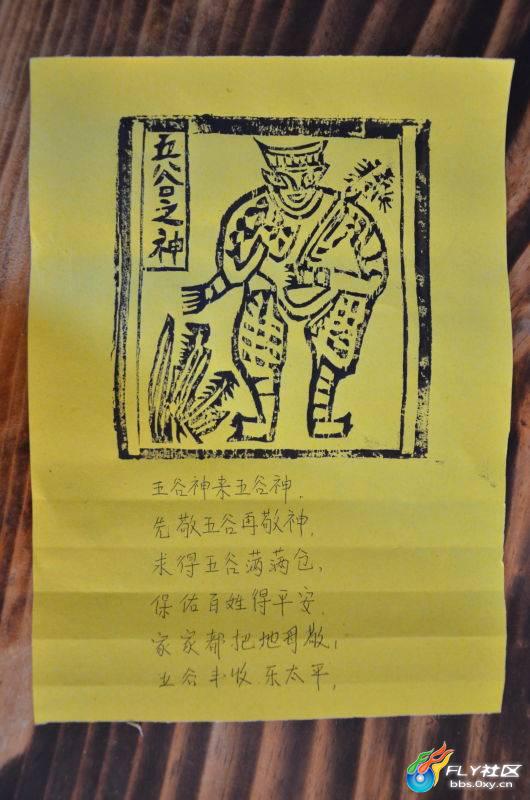 五谷之神
五谷神来五谷神,
先敬五谷再敬神,
求得五谷满满仓,
保佑百姓得平安,
家家都把地母敬,
五谷丰收乐太平,
FLY社区
bbs.0xy.cn